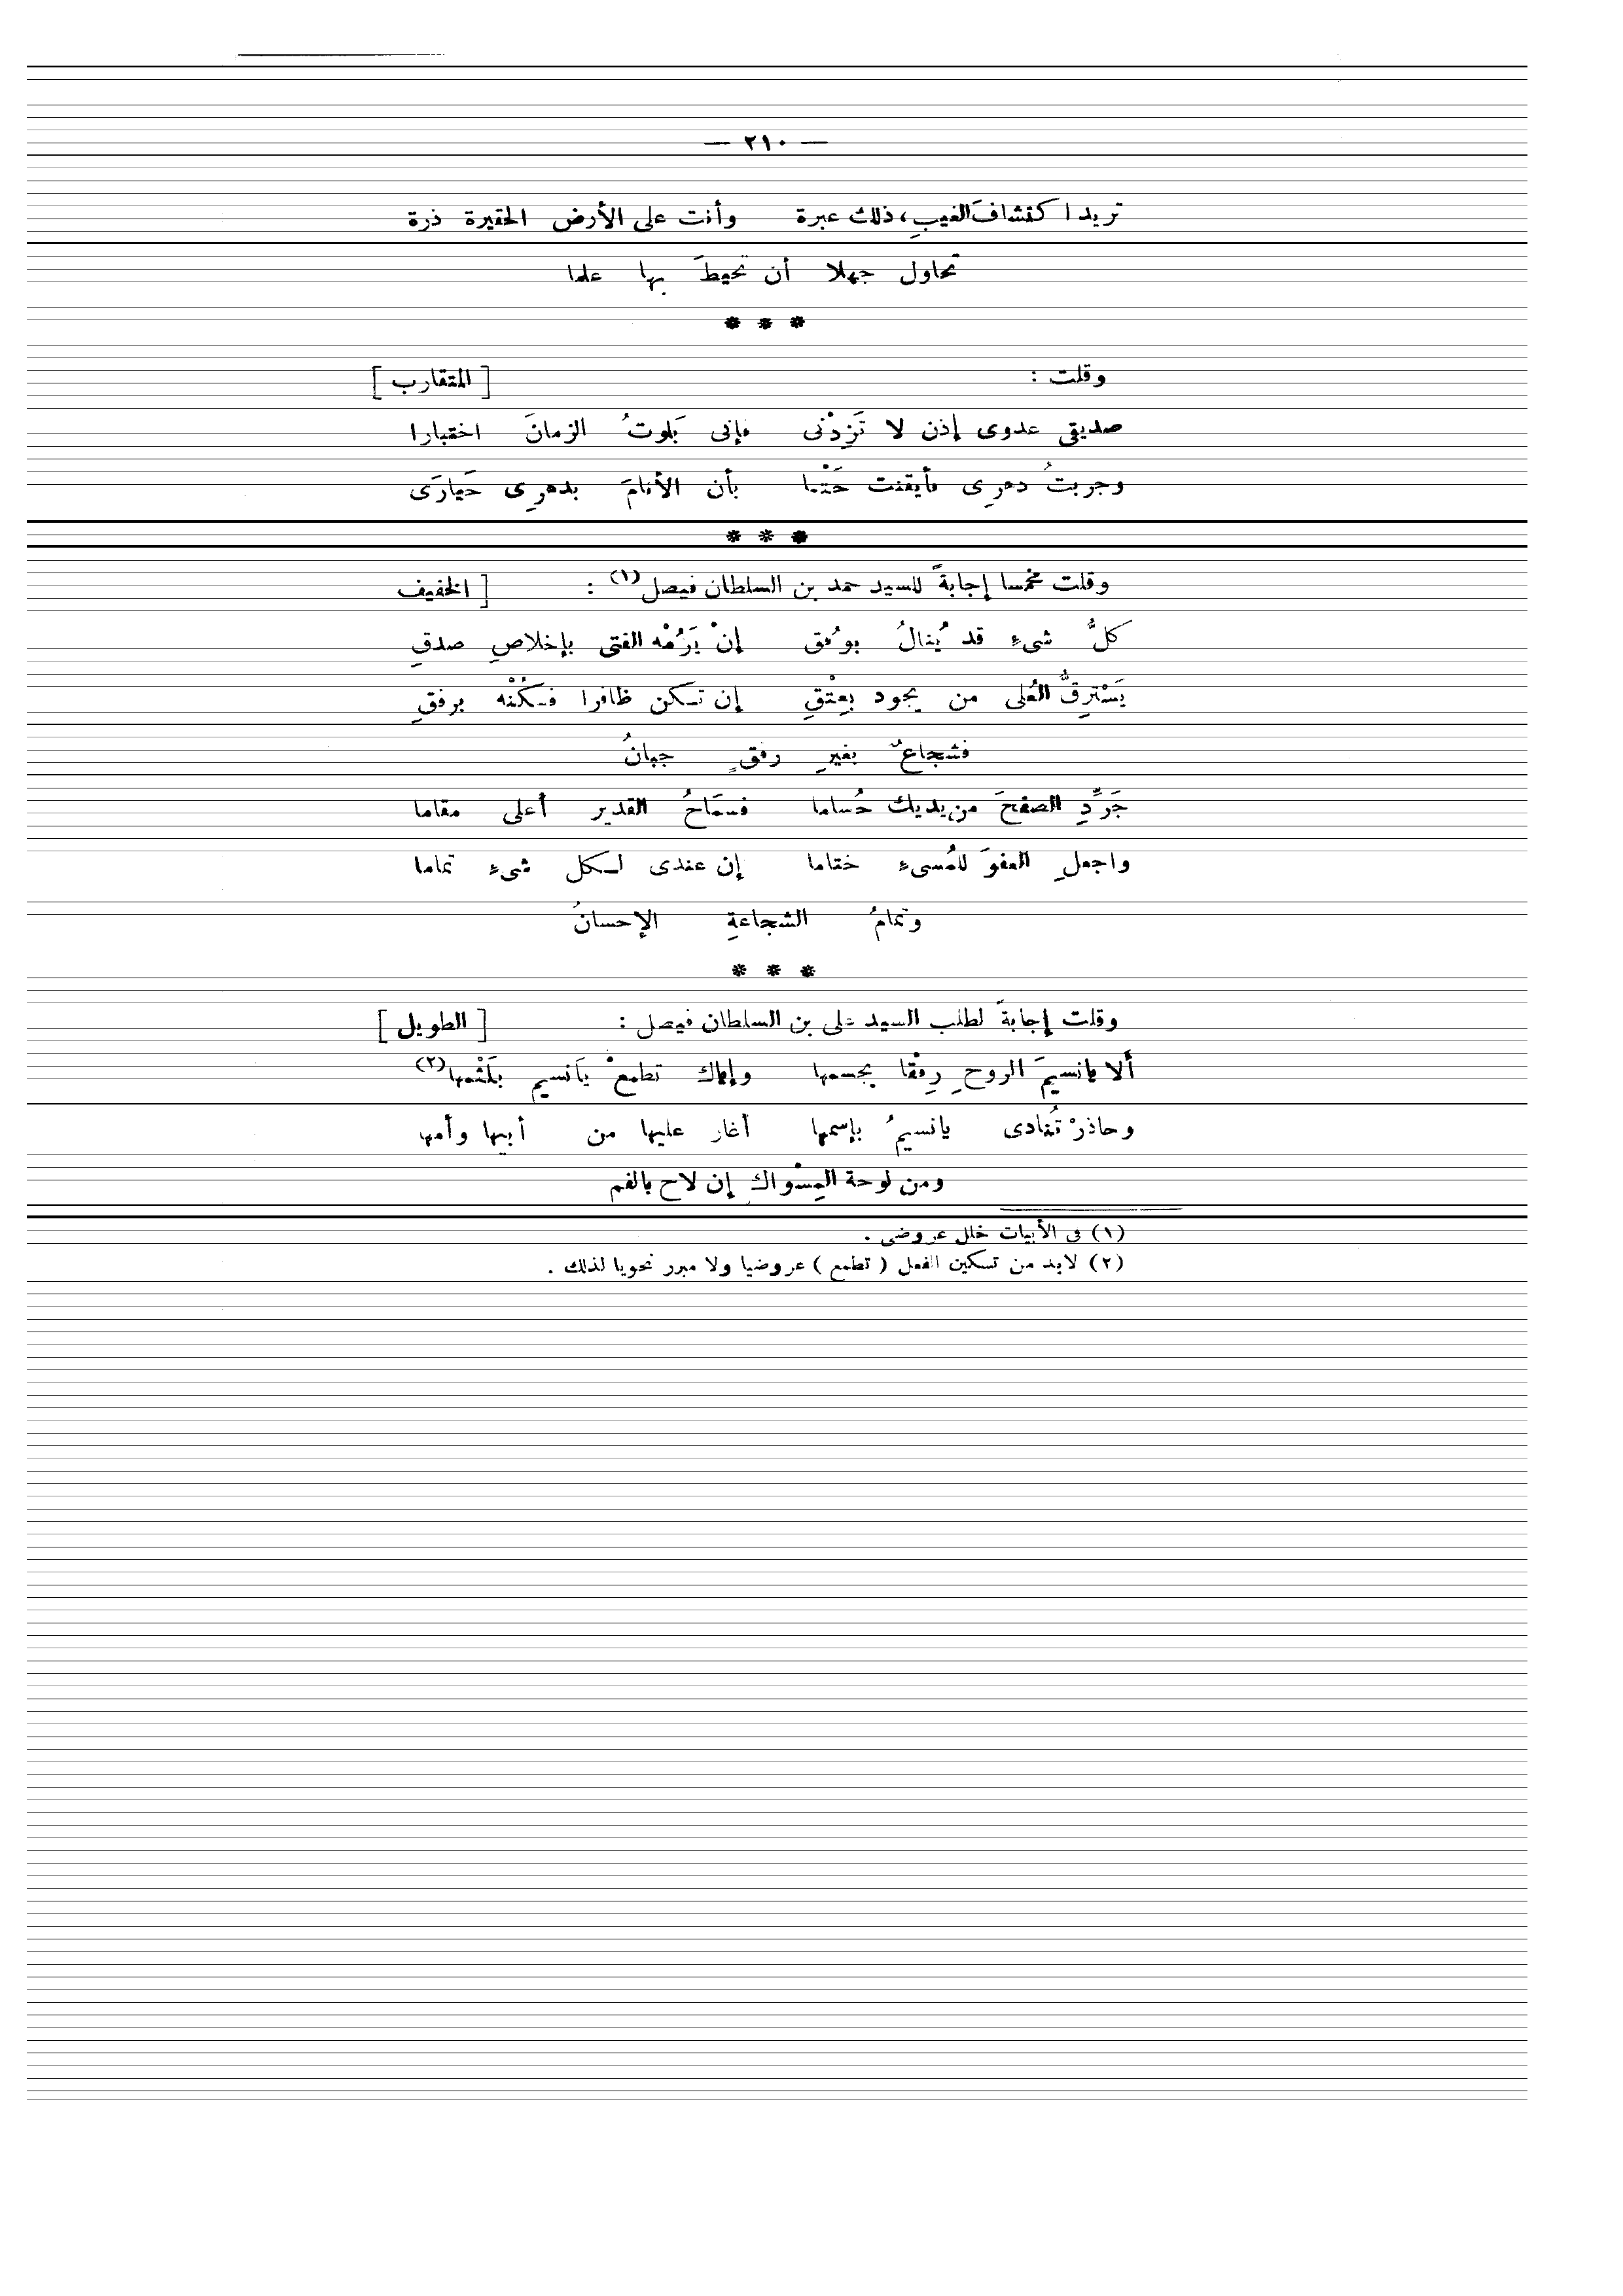 — ٢١٠ —
تريد اكتشافَ الغيبِ، ذلك عبرة وأنت على الأرض الحقيرة ذرة
تحاول جهلا أن تحيطَ بها علما
* * *
وقلت : [ المتقارب ]
صديقى عدوى إذن لا تَزِدْنى فإنى بَلوتُ الزمانَ اختبارا
وجربتُ دهرِى فأيقنت حَتْما بأن الأنامَ بدهرِى حَيارَى
* * *
وقلت مخمسا إجابةً للسيد حمد بن السلطان فيصل(١) : [ الخفيف
كلُّ شىءٍ قد يُنالُ بوُفق إنْ يَرُمْه الفتى بإخلاصِ صدقِ
يَسْترِقُّ العُلى من يجود بِعِتْقِ إن تكن ظافرا فكُنْه برفقِ
فشجاعٌ بغيرِ رفقٍ جبانُ
جَرِّدِ الصفحَ من يديك حُساما فسمَاحُ القدير أعلى مقاما
واجعلِ العفوَ للمُسىءِ ختاما إن عندى لكل شىءٍ تماما
وتمامُ الشجاعةِ الإحسانُ
* * *
وقلت إجابةً لطلب السيد على بن السلطان فيصل : [ الطويل ]
ألا يانسيمَ الروحِ رِفْقا بجسمها وإياك تطمعْ يانسيم بلَثْمها(٢)
وحاذرْ تُنادى يانسيمُ بإسمها أغار عليها من أبيها وأمها
ومن لوحة المِسْواك إن لاح بالفم
(١) فى الأبيات خلل عروضى .
(٢) لابد من تسكين الفعل ( تطمع ) عروضيا ولا مبرر نحويا لذلك .